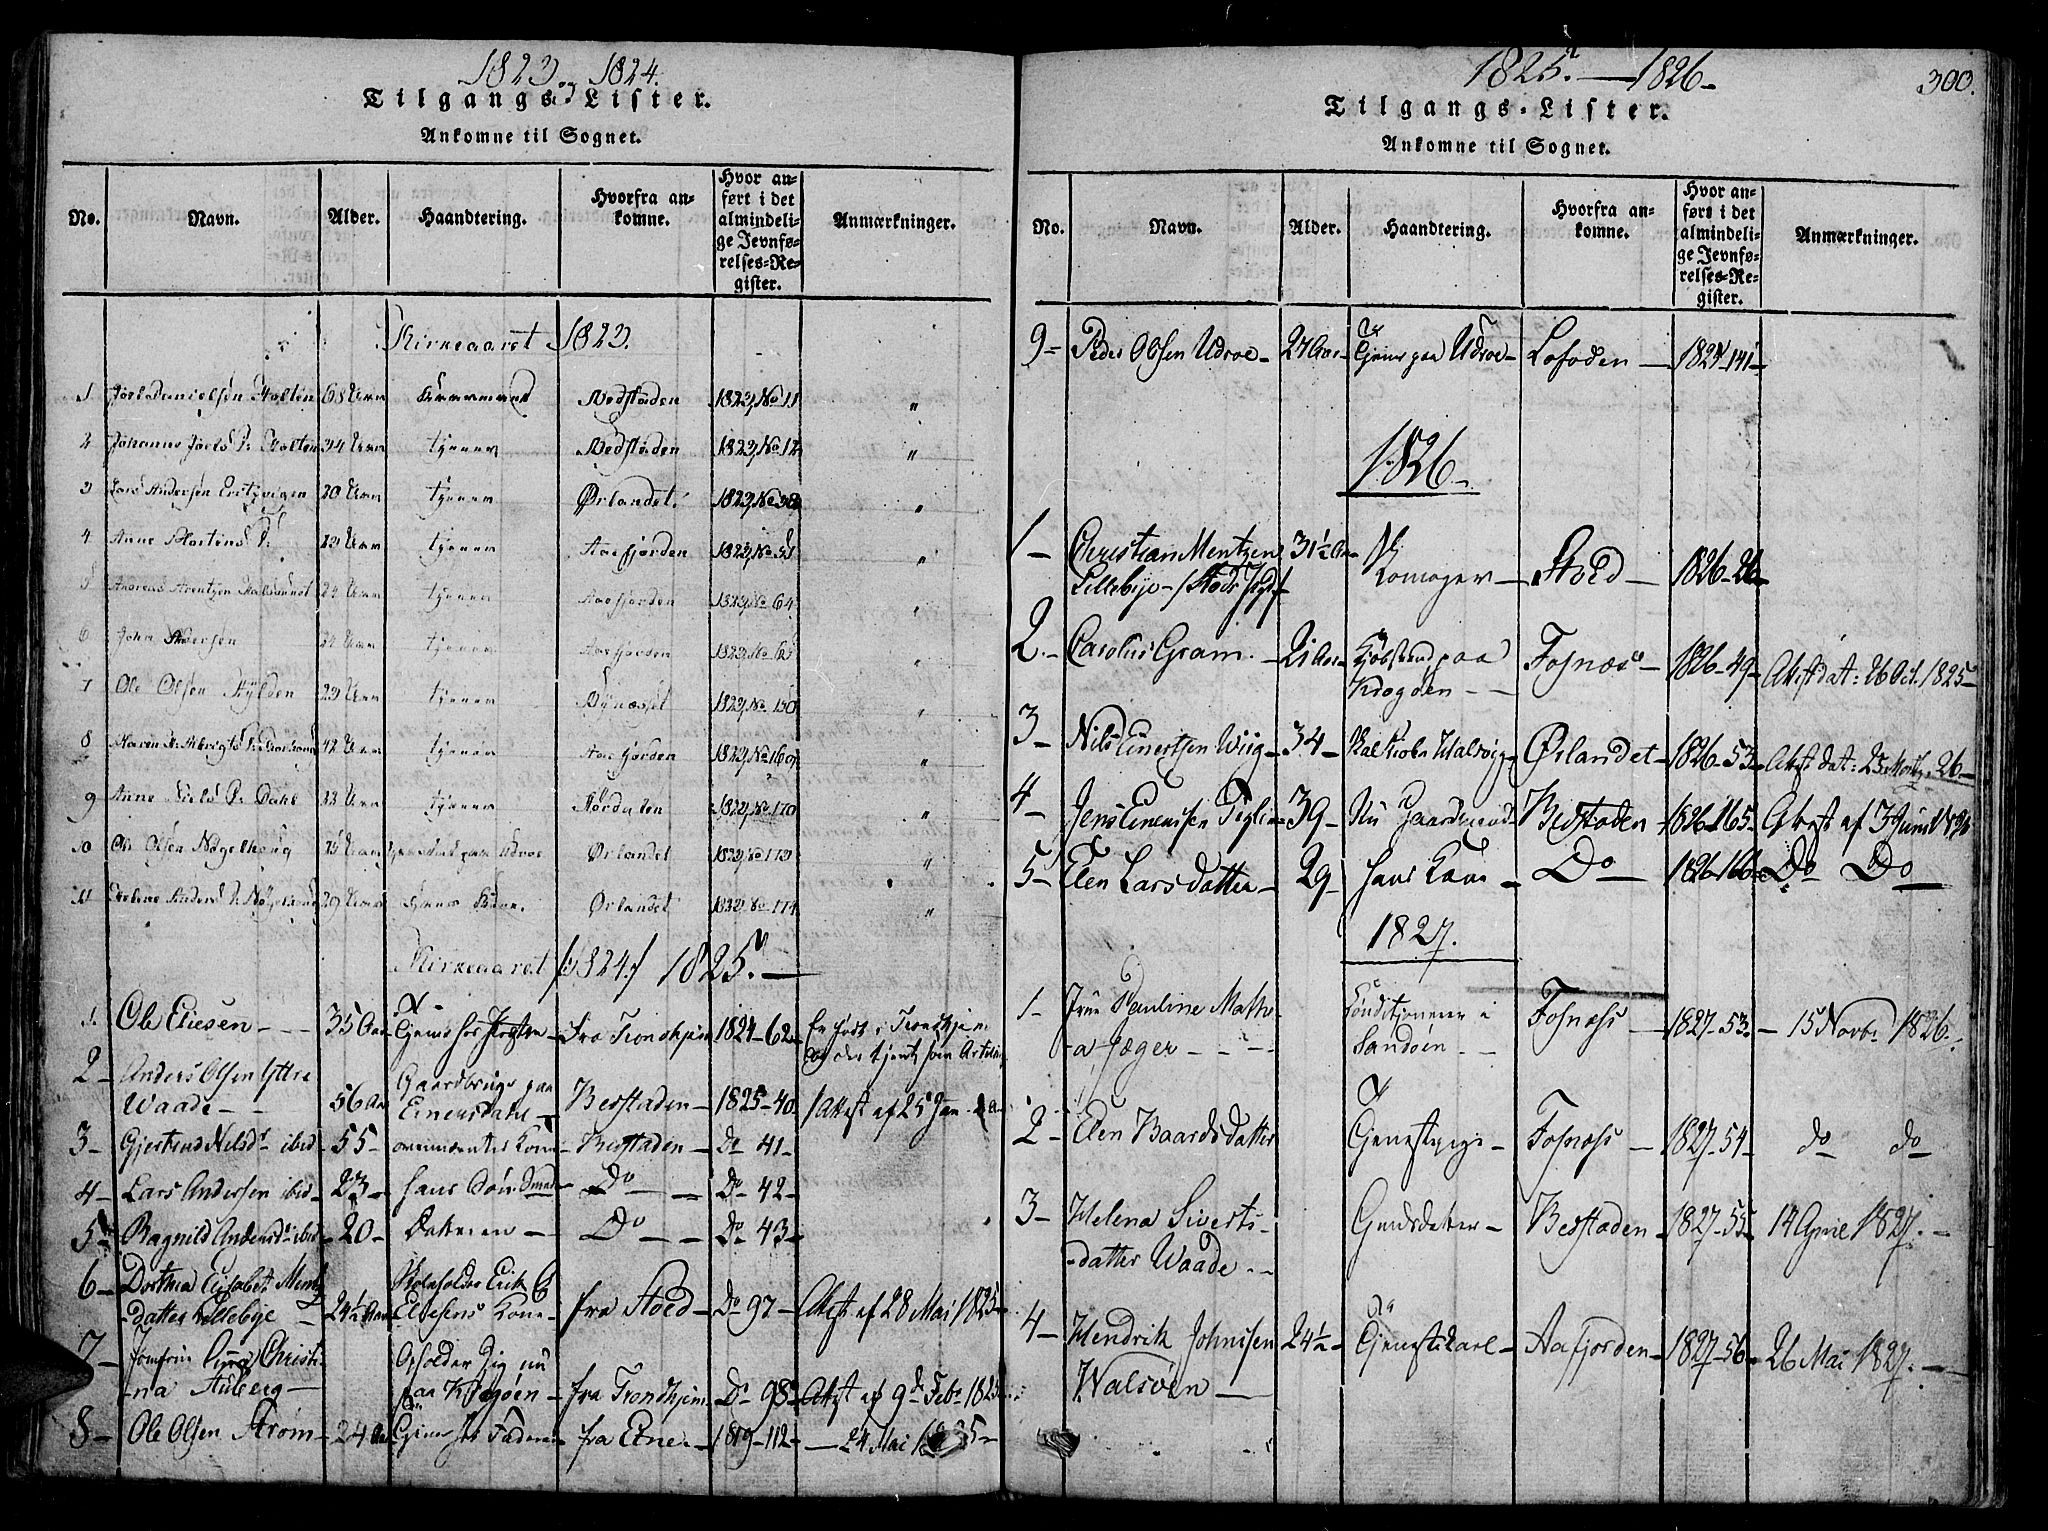 1823 og 1824.
Tilgangs-Lister.
Ankomne til Sognet.
No. Navn. Alder. Haandtering. Hvorfra ankomne. Hvor anført i det almindelige Jevnførelses-Register. Anmærkninger.
Kirkeaaret 1823.
1 Joel Danielsøn Holten 68 Aar Bedstaden 1823, No 11 "
2 Johanna Joels D. Holten 34 Aar tjener Bedstaden 1823, No 12 "
3 Lars Andersen 20 Aar tjener Ørlandet 1823, No 38 "
4 Anne Mortens D. 23 Aar tjener Aafjorden 1823, No 51 "
5 Andreas Arentzen 24 Aar tjener Aafjorden 1823, No 64 "
6 John Andersen 24 Aar tjener Aafjorden 1823, No 65 "
7 Ole Olsen 23 Aar tjener Bynæsset 1823, No 150 "
8 Maren 42 Aar tjener Aafjorden 1823, No 169 "
9 Anne Niels D. Dahl 33 Aar tjener Størdalen 1823, No 170 "
10 Ole Olsen Nøgelhoug Aar paa Udroe Ørlandet 1823, No 173 "
11 Anders D. 29 Aar Hans Kone. Ørlandet 1823, No 174 "
Kirkeaaret /:1824:/ 1825. —
1. Ole Eliesen - - - 35 Aar Tjener hos Præsten fra Trondhjem 1824-62 Er født i Trondhjem
og der tjent som
2 - Anders Olsen Yttre
Waade - - 56 Aar Gaardbruger paa
Einersdahl - Bedstaden - 1825-40 /Attest af 25 Jan.
3 - Gjertrud Nilsdr ibid 55 - Kone Bedstaden - Do 41 -
4 - Lars Andersen ibid - 23 - hans Søn - Do - Do 42 -
5 - Ragnild Andersdr ibid - 20 - Datteren - Do - Do 43 -
6 - Dorthea Elisabet Mentz
datter Lillebye - 24½ Aar Erik
Eliesens Kone - fra Stoed - Do 97 - Attest af 28 Mai 1825 -
7 - Jomfru Christi-
na Auberg - Opholder sig nu
paa Krogøen - fra Trondhjem - Do 98 - Attest af 9de Febr 1825
8 - Ole Olsen Strøm - 24 Aar Tjener hos Faderen fra Eine - 1819-112 - — 24 Mai 1825 -
1825. — 1826 -
303.
Tilgangs-Lister.
Ankomne til Sognet.
No. Navn. Alder. Haandtering. Hvorfra ankomne. Hvor anført i det almindelige Jevnførelses-Register. Anmærkninger.
9 - Peder Olsen Udroe - 27 Aar - Tjener paa Udroe - Lofoden - 1824-141 -
1826 -
1 - Christian Mentzen
Lillebye - 31½ Aar - Skomager - Stoed - 1826-26 -
2. - Carolus Gram. - 21 Aar - paa
Krogøen - - Fosnæs - 1826-49 - Attest dat: 26 Oct. 1825 -
3 - Nils Einertsen Wiig - 34 - Skal Kiøbe Halsvig - Ørlandet - 1826-53 - Attest dat: 25 Martz 26 -
4 - Jens Einersen Teglin - 39 - Nu Gaardmand - Bedstaden - 1826-165 - Attest af 3 Juni 1826
5 - Elen Larsdatter - 29 - hans Kone - Do — 1826-166 - Do Do —
1827.
1 - Pauline Math-
-a Jæger - - - Konditionerer i
Sandøen - - Fosnæss - 1827-53 - - 15 Novbr 1826.
2 - Elen Baardsdatter Tjenestepige - Fosnæss - 1827-54 - do do
3 - Helena Siverts-
-datter Waade. - - Bedstaden - 1827-55 14 April 1827. -
4 - Hendrik Johnssen
Walsøen — 24½ - Tjenestekarl - Aafjorden - 1827-56 - 26 Mai 1827. -